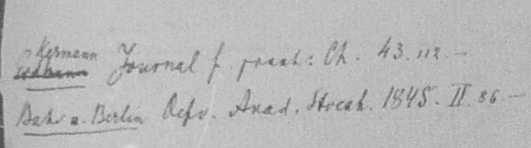 Kermann
Erdmann Journal f. prakt: Ch. 43. 112. —
Bahr u. Berlin Oefv. Akad. Stockh. 1845. II. 86 —